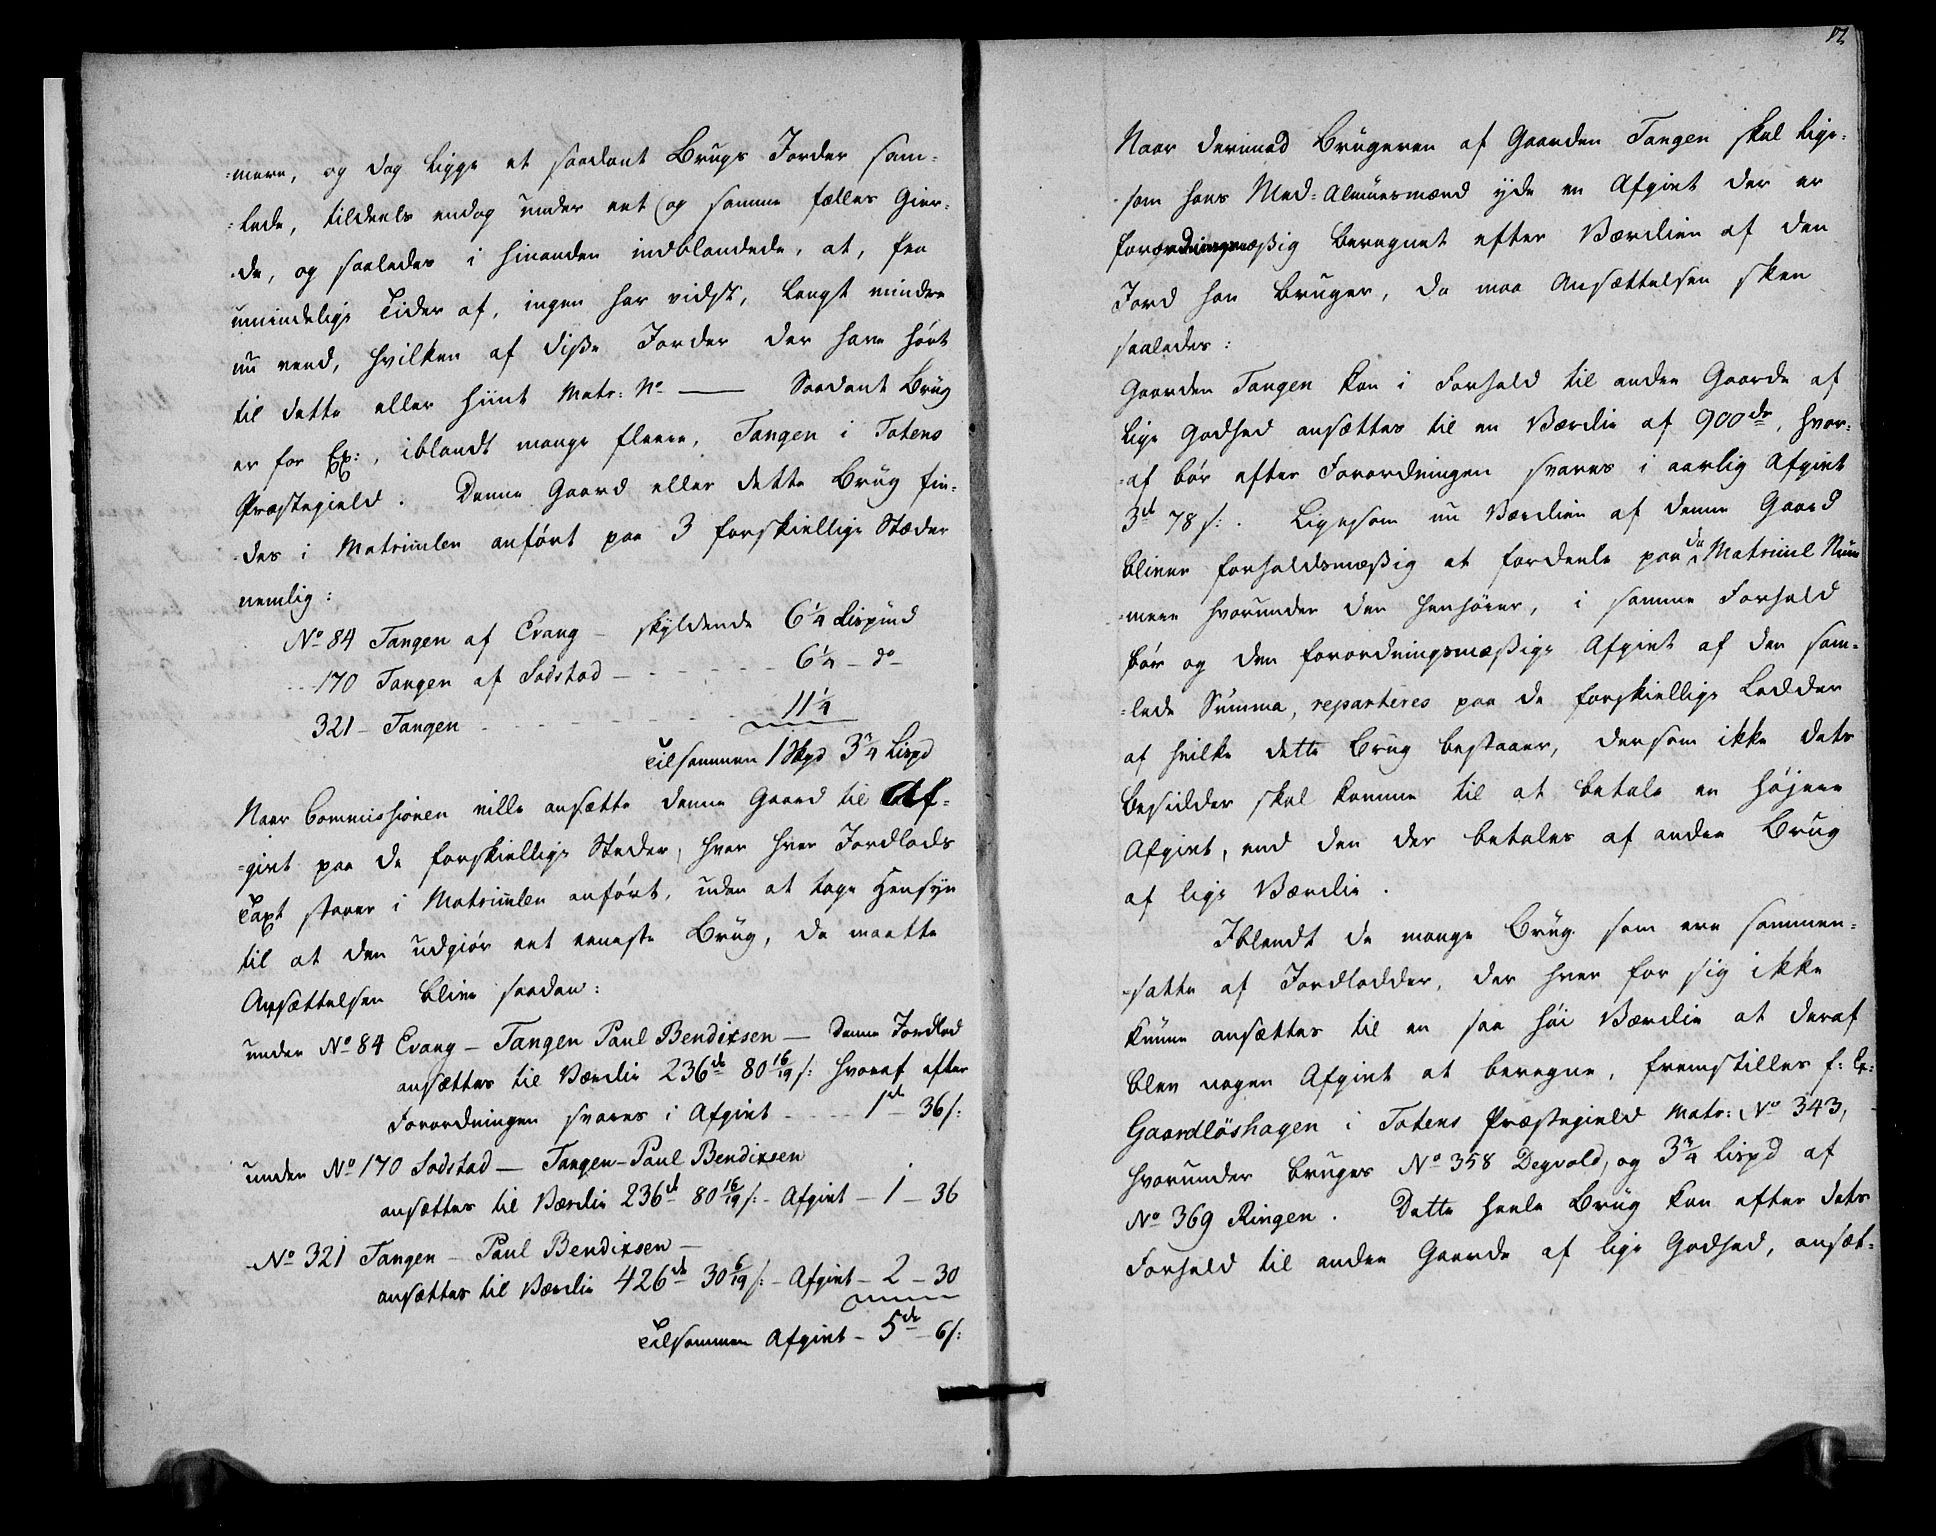 -mere, og dog ligge et saadant Brugs Jorder sam-
-lede, tildeels endog under eet og samme fælles Gier-
-de, og saaledes i hinanden indblandede, at, fra
umindelige Tider af, ingen har vidst, langt mindre
nu veed, hvilken af disse Jorder der have hørt
til dette eller hiint Matr: No — Saadant Brug
er for Ex:, iblandt mange fleere, Tangen i Totens
Præstegield. Denne Gaard eller dette Brug fin-
-des i Matriculen anført paa 3 forskiellige Stæder
nemlig:
No 84 Tangen af Evang — skyldende 6 1/4 Lispund
170 Tangen af Sodstad — 6 1/4 — do —
321 — Tangen 11 1/4
Tilsammen 1 Skpd 3 3/4 Lispd
Naar Commissionen ville ansætte denne Gaard til Af-
-givt paa de forskiellige Steder, hvor hver Jordlods
Taxt staaer i Matriculen anført, uden at tage Hensyn
til at den udgiør eet eeneste Brug, da maatte
Ansættelsen blive saadan:
under No 84 Evang — Tangen Paul Bendixsen — Denne Jordlod
ansættes til Værdie 236 d 80 16/19 s: hvoraf efter
Forordningen svares i Afgivt 1 d — 36 s:
under No 170 Sodstad — Tangen — Paul Bendixsen
ansættes til Værdie 236 d 80 16/19 s: — Afgivt — 1 — 36
No 321 Tangen — Paul Bendixsen —
ansættes til Værdie 426 d 30 6/19 s: — Afgivt — 2 — 30
Tilsammen Afgivt — 5 d 6 s:
12
Naar derimod Brugeren af Gaarden Tangen skal lige-
-som hans Med-Almuesmænd yde en Afgivt der er
forordningsmæssig beregnet efter Værdien af den
Jord han bruger, da maa Ansættelsen skee
saaledes:
Gaarden Tangen kan i Forhold til andre Gaarde af
lige Godhed ansættes til en Værdie af 900 dr, hvor-
-af bør efter Forordningen svares i aarlig Afgivt
3 d 78 s:. Ligesom nu Værdien af denne Gaard
bliver forholdsmæssig at fordeele paa de Matricul Num
-mere hvorunder den henhører, i samme Forhold
bør og den forordningsmæssige Afgivt af den sam-
-lede Summa, reparteres paa de forskiellige Lodder
af hvilke dette Brug bestaaer, dersom ikke dets
Besidder skal komme til at betale en højere
Afgivt, end den der betales af andre Brug
af lige Værdie.
Iblandt de mange Brug som ere sammen-
-satte af Jordlodder, der hver for sig ikke
kunne ansættes til en saa høi Værdie at deraf
blev nogen Afgivt at beregne, fremstilles f: Ex:
Gaardløshagen i Totens Præstegield Matr: No 343,
hvorunder bruges No 358 Degvold, og 3 3/4 Lispd af
No 369 Ringen. Dette heele Brug kan efter dets
Forhold til andre Gaarde af lige Godhed, ansæt-